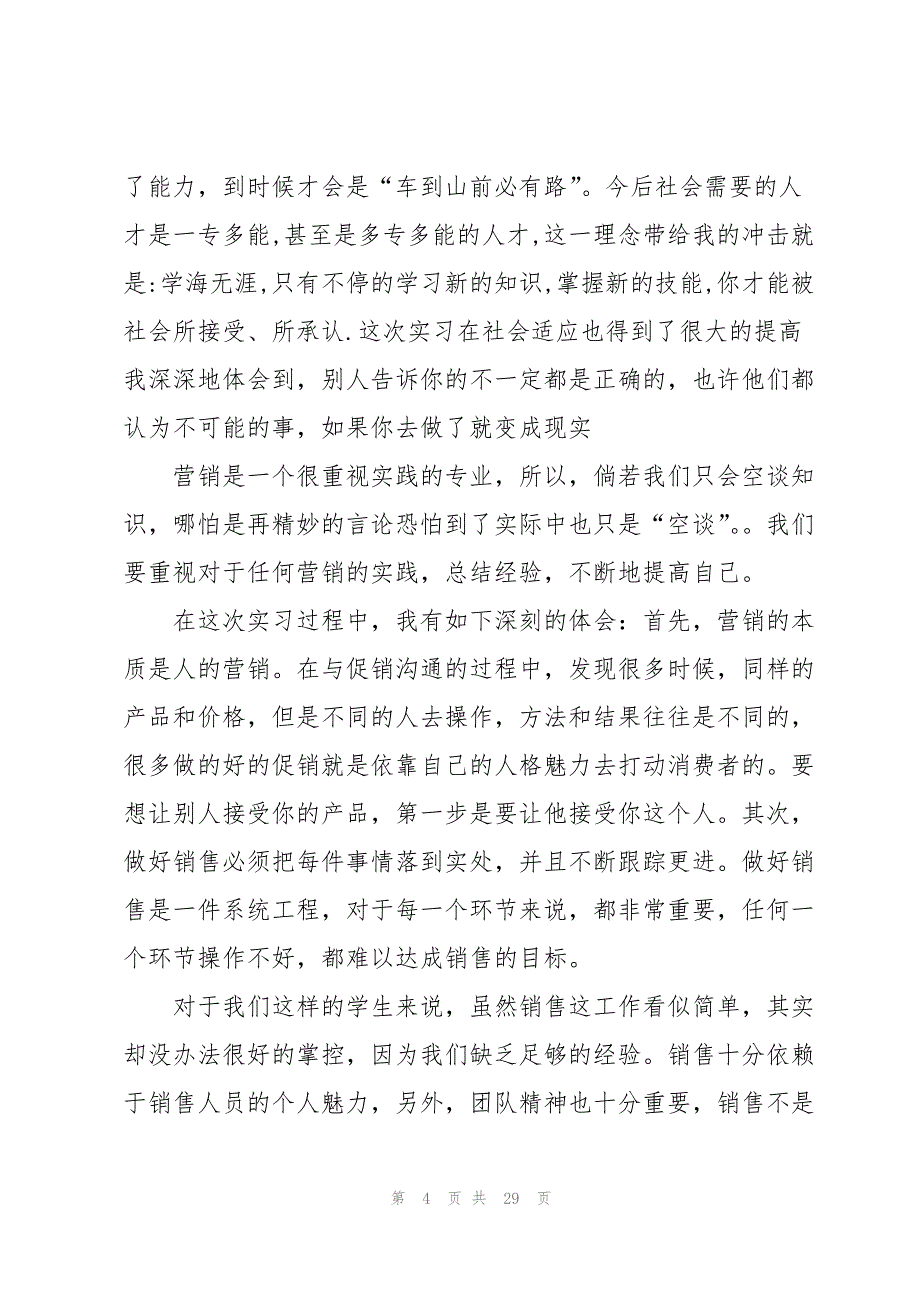 了能力，到时候才会是“车到山前必有路”。今后社会需要的人
才是一专多能,甚至是多专多能的人才,这一理念带给我的冲击就
是:学海无涯,只有不停的学习新的知识,掌握新的技能,你才能被
社会所接受、所承认.这次实习在社会适应也得到了很大的提高
我深深地体会到，别人告诉你的不一定都是正确的，也许他们都
认为不可能的事，如果你去做了就变成现实
营销是一个很重视实践的专业，所以，倘若我们只会空谈知
识，哪怕是再精妙的言论恐怕到了实际中也只是“空谈”。。我们
要重视对于任何营销的实践，总结经验，不断地提高自己。
在这次实习过程中，我有如下深刻的体会：首先，营销的本
质是人的营销。在与促销沟通的过程中，发现很多时候，同样的
产品和价格，但是不同的人去操作，方法和结果往往是不同的，
很多做的好的促销就是依靠自己的人格魅力去打动消费者的。要
想让别人接受你的产品，第一步是要让他接受你这个人。其次，
做好销售必须把每件事情落到实处，并且不断跟踪更进。做好销
售是一件系统工程，对于每一个环节来说，都非常重要，任何一
个环节操作不好，都难以达成销售的目标。
对于我们这样的学生来说，虽然销售这工作看似简单，其实
却没办法很好的掌控，因为我们缺乏足够的经验。销售十分依赖
于销售人员的个人魅力，另外，团队精神也十分重要，销售不是
第 4 页 共 29 页